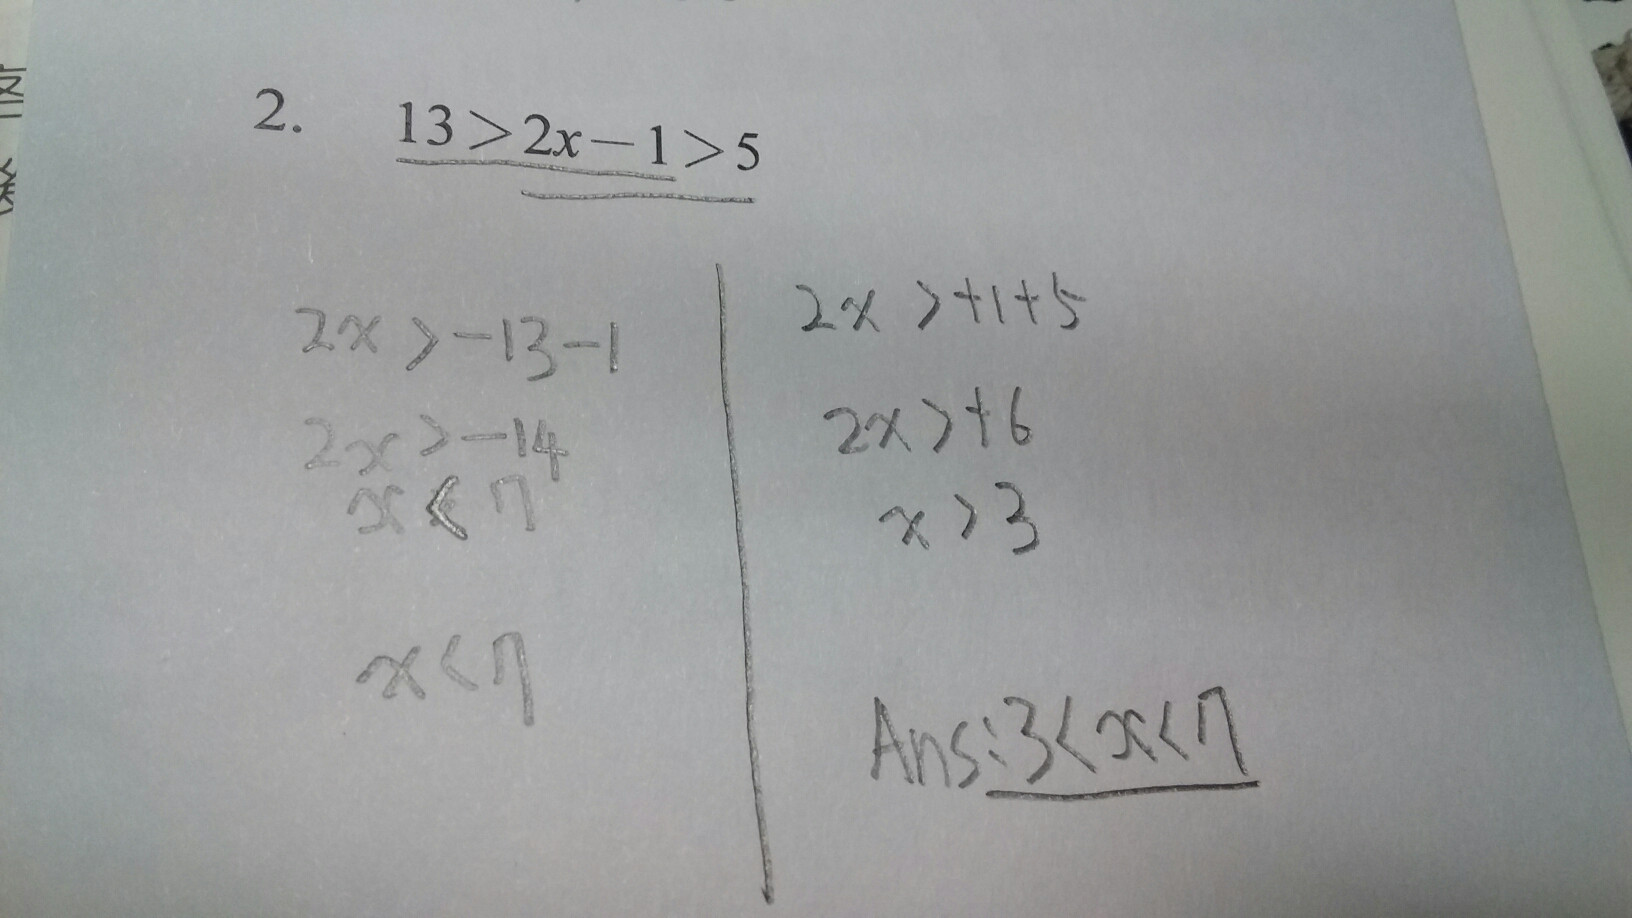 2. 13>2x−1>5
2x>-13-1
2x>-14
x<7
x<7
2x>+1+5
2x>+6
x>3
Ans:3<x<7